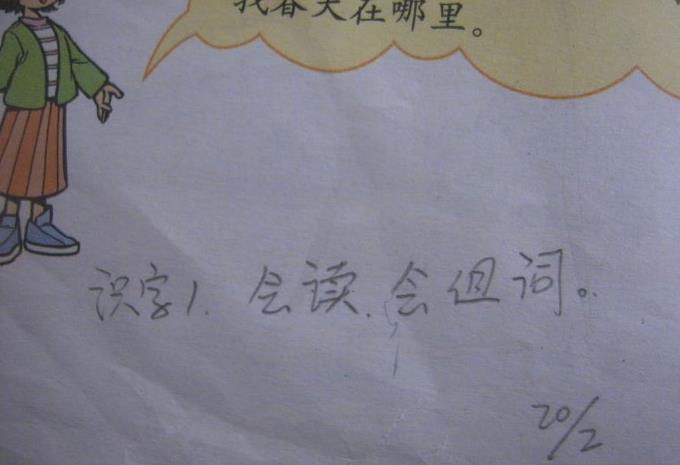 找春天在哪里。
识字1. 会读.会但词。
20/2